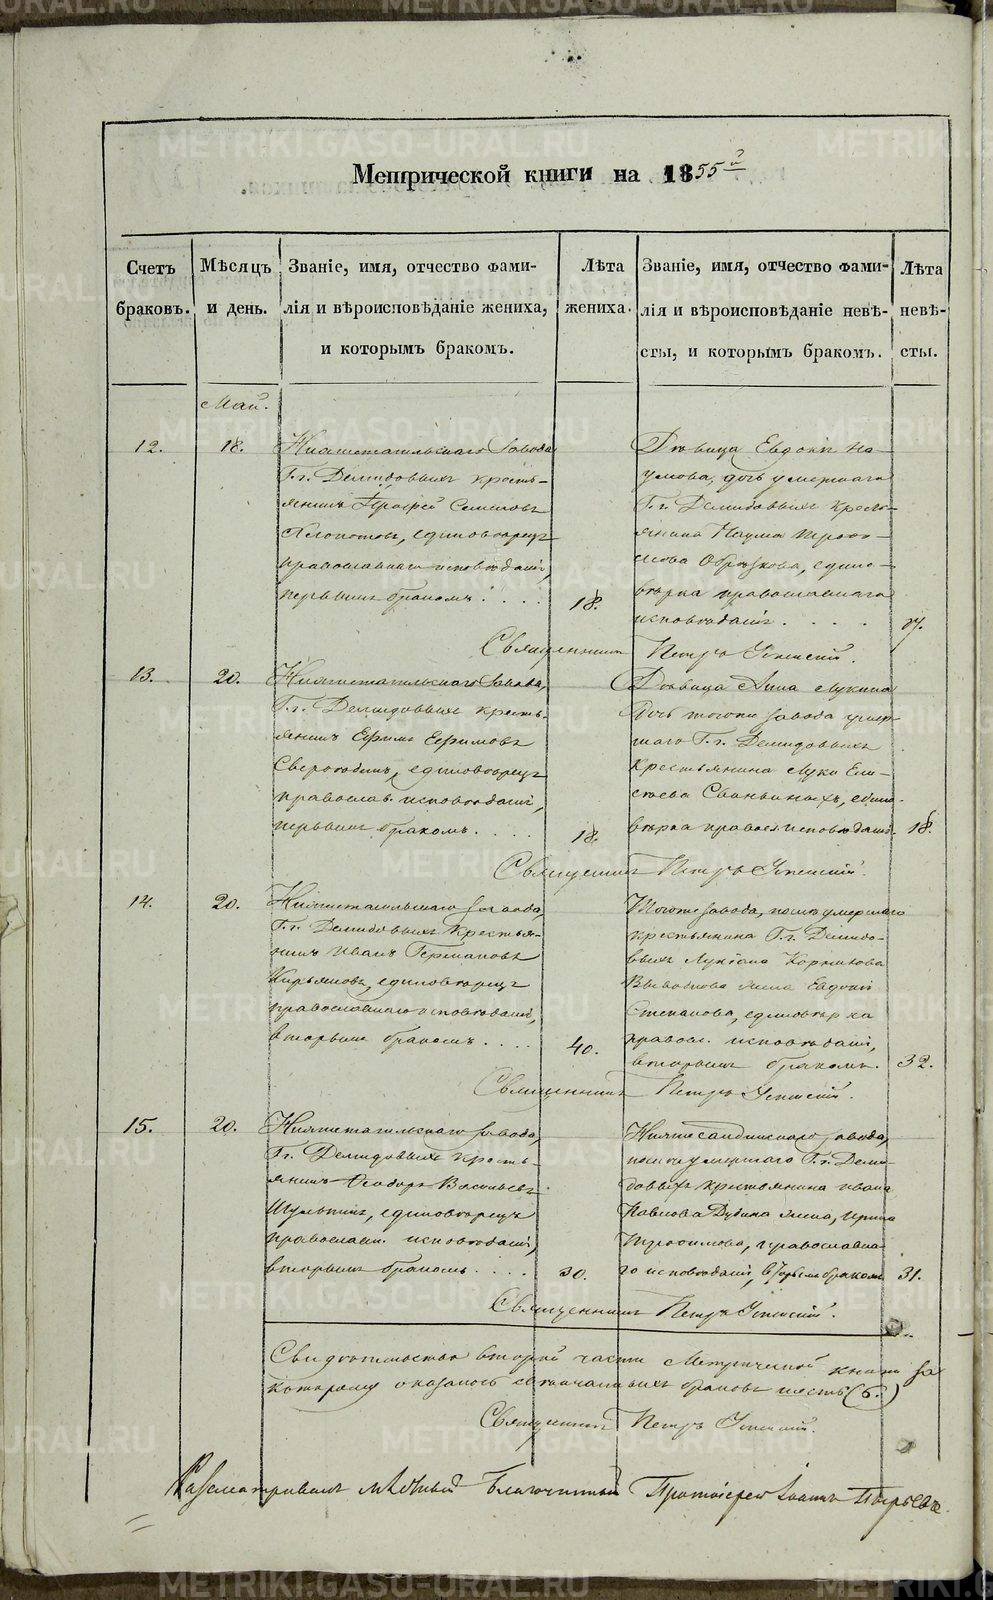 Метрической книги на 1855й
Счетъ браковъ.
Мѣсяцъ и день.
Званіе, имя, отчество фами-
лія и вѣроисповѣданіе жениха,
и которымъ бракомъ.
Лѣта жениха.
Званіе, имя, отчество фами-
лія и вѣроисповѣданіе невѣ-
сты, и которымъ бракомъ.
Лѣта невѣ-
сты.
Май.
12.
18.
Нижнетагильскаго завода
Г.г. Демидовыхъ кресть-
янинъ Семеновъ
единовѣрецъ
православнаго исповѣданія,
первымъ бракомъ
18.
Дѣвица Евдокія На-
умова, дочь умершаго
Г.г. Демидовыхъ кресть-
янина Наума Трофи-
мова Образкова, едино-
вѣрка православнаго
исповѣданія
17.
Священникъ Петръ Успенскій.
13.
20.
Нижнетагильскаго завода,
Г.г. Демидовыхъ кресть-
янинъ Ефимъ Ефимовъ
единовѣрецъ
православ. исповѣданія,
первымъ бракомъ
18.
Дѣвица Анна Лукина
дочь тогоже завода умер-
шаго Г.г. Демидовыхъ
крестьянина Луки Ели-
сѣева Свиньиныхъ, едино-
вѣрка правос. исповѣданія.
18.
Священникъ Петръ Успенскій.
14.
20.
Нижнетагильскаго завода,
Г.г. Демидовыхъ крестья-
нинъ Иванъ Германовъ
Кирьяновъ, единовѣрецъ
православнаго исповѣданія,
вторымъ бракомъ
40.
Тогоже завода, послѣ умершаго
крестьянина Г.г. Демидо-
выхъ
жена Евдокія
Степанова, единовѣрка
правосл. исповѣданія,
вторымъ бракомъ.
32.
Священникъ Петръ Успенскій.
15.
20.
Нижнетагильскаго завода,
Г.г. Демидовыхъ кресть-
янинъ Ѳеодоръ Васильевъ
Шульпинъ, единовѣрецъ
православн. исповѣданія,
вторымъ бракомъ
30.
Нижнесалдинскаго завода,
послѣ умершаго Г.г. Деми-
довыхъ крестьянина Ивана
Павлова Дубина жена, Ирина
Трофимова, православна-
го исповѣданія, вторымъ бракомъ
31.
Священникъ Петръ Успенскій.
Свидѣтельство второй части Метрической книги за
которому оказалось бракосочетавшихъ браковъ шесть (6.)
Священникъ Петръ Успенскій.
Разсматривалъ мѣстный Благочинный Протоіерей Іоаннъ Пырьевъ
METRIKI.GASO-URAL.RU